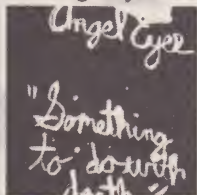 Angel Eyes
"Something
to do with
death"